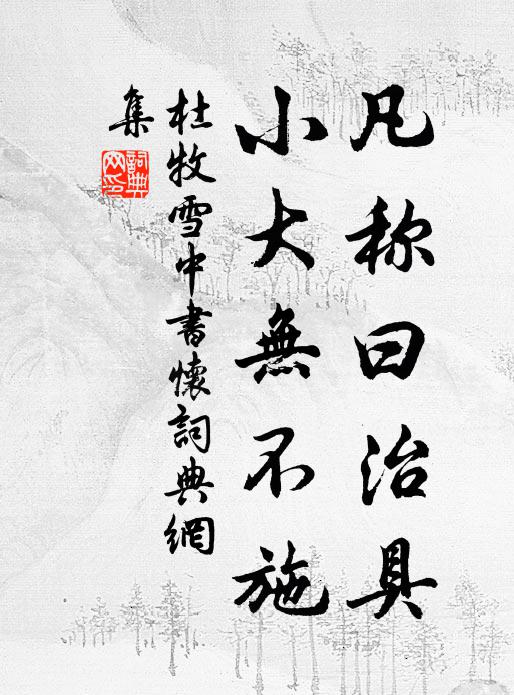 凡称曰治具
小大無不施
杜牧雪中書懷詞典網
集
詞典网印